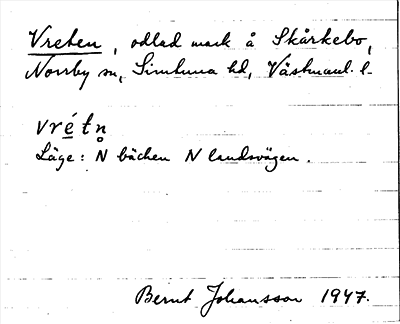 Vreten, odlad mark å Skårkebo,
Norrby sn, Simtuna hd, Västmanl. l.
vrétn̥
Läge: N bäcken N landsvägen.
Bernt Johansson 1947.